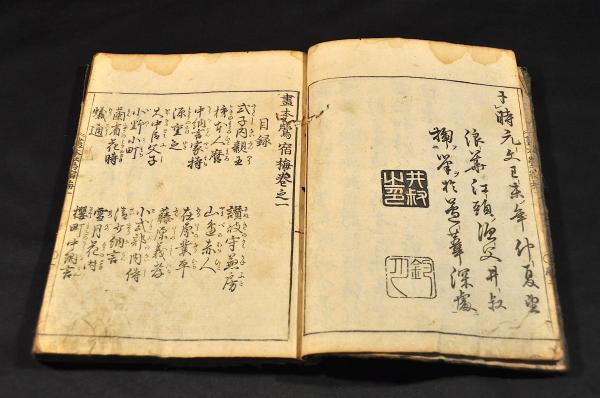 于時元文己未年仲夏望
浪華江頭漁父井叔
掬筆於蘆華深處
井叔之印
畫本鶯宿梅巻之一
目録
式子内親王
柿本人麿
中納言家持
源重之
大中臣父子
小野小町
蘭省花時
蟻通
讃岐守兼房
山邊赤人
在原業平
藤原義孝
小式部内侍
清少納言
雪月花時
櫻町中納言